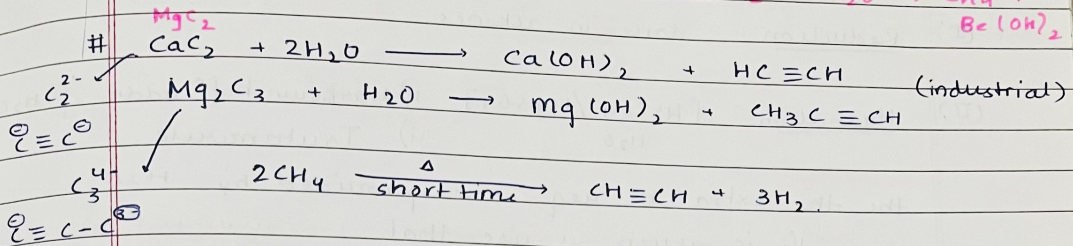 Be(OH)₂
MgC₂
# CaC₂ + 2H₂O ⟶ Ca(OH)₂ + HC≡CH (industrial)
C₂²⁻
Mg₂C₃ + H₂O ⟶ Mg(OH)₂ + CH₃C≡CH
⊖C≡C⊖
C₃⁴⁻
2CH₄ —Δ/short time⟶ CH≡CH + 3H₂.
⊖C≡C-C³⁻